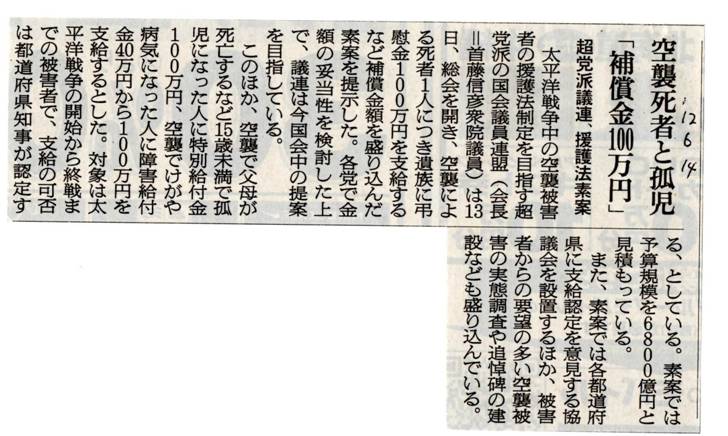 空襲死者と孤児
「補償金100万円」
超党派議連、援護法素案
'12
6
14
太平洋戦争中の空襲被害
者の援護法制定を目指す超
党派の国会議員連盟（会長
＝首藤信彦衆院議員）は13
日、総会を開き、空襲によ
る死者1人につき遺族に弔
慰金100万円を支給する
など補償金額を盛り込んだ
素案を提示した。各党で金
額の妥当性を検討した上
で、議連は今国会中の提案
を目指している。
このほか、空襲で父母が
死亡するなど15歳未満で孤
児になった人に特別給付金
100万円、空襲でけがや
病気になった人に障害給付
金40万円から100万円を
支給するとした。対象は太
平洋戦争の開始から終戦ま
での被害者で、支給の可否
は都道府県知事が認定す
る、としている。素案では
予算規模を6800億円と
見積もっている。
また、素案では各都道府
県に支給認定を意見する協
議会を設置するほか、被害
者からの要望の多い空襲被
害の実態調査や追悼碑の建
設なども盛り込んでいる。